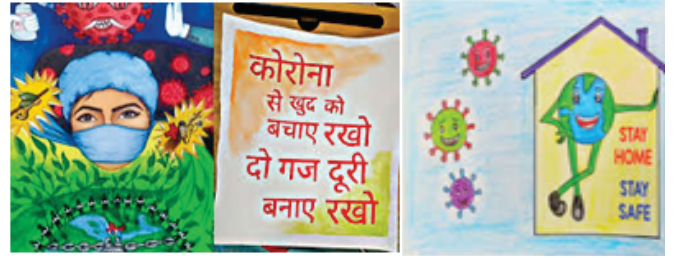 कोरोना
से खुद को
बचाए रखो
दो गज दूरी
बनाए रखो
STAY
HOME
STAY
SAFE